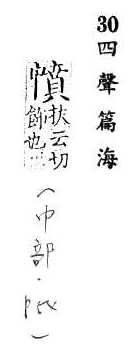 30四聲篇海
幩扶云切
飾也…
（巾部．）